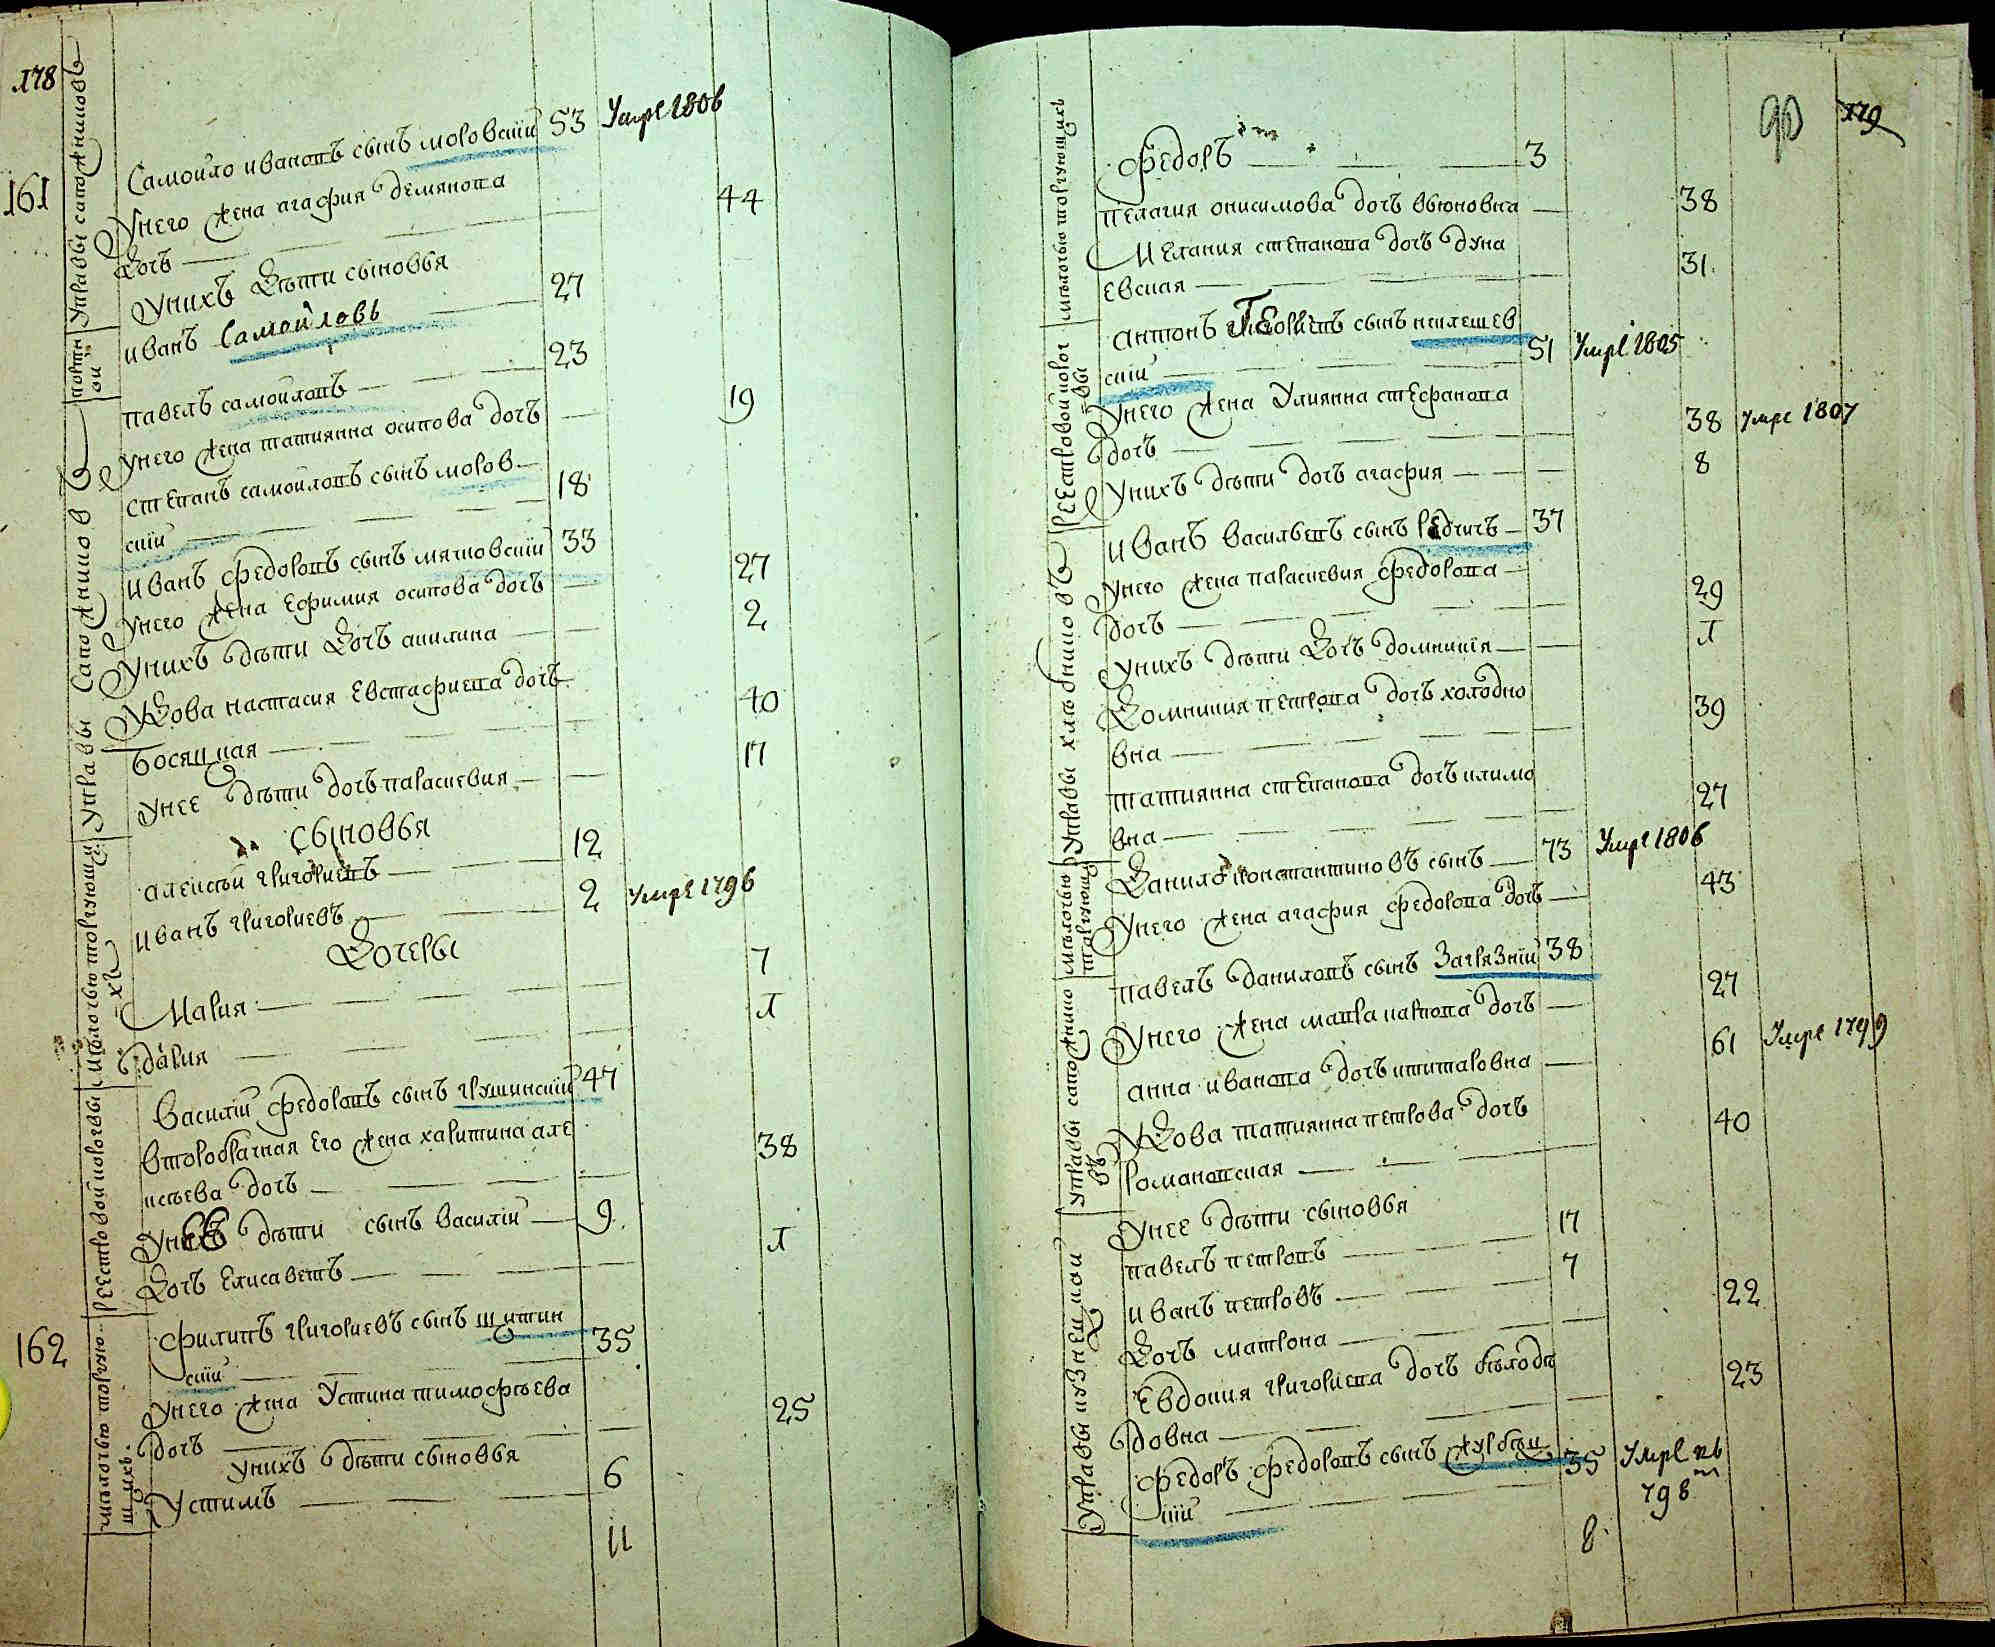 178
161
Управы сапожнишовъ
Самойло иванопъ сынъ моровский 53 Умре 1806
Унего жена агафия демянопа
дочь 44
Унихъ дѣти сыновья
иванъ Самойловъ 27
павелъ самойлопъ 23
Унего жена татиянна осипова дочъ 19
степанъ самойлопъ сынъ моров
ский 18
Управы Сапожнишовъ
иванъ федоропъ сынъ мятовский 33
Унего жена ефимия осипова дочъ 27
Унихъ дѣти дочъ акилина 2
Удова настасия евстафиепа дочъ
Босяцкая 40
Унее дѣти дочъ параскевия 17
сыновья
алексѣй григориепъ 12
иванъ григориевъ 2 Умре 1796
дочеры
мелочью торгующихъ
Мария 7
дария 1
реестровой
василий федоропъ сынъ грушинский 47
второбрачная его жена харитина але
ксѣева дочъ 38
Унихъ дѣти сынъ василий 9
дочъ елисаветъ 1
162
филипъ григориевъ сынъ щитин
ский 35
Унего жена Устина тимофѣева
дочъ 25
Унихъ дѣти сыновья
Устимъ 6
11
90
179
федоръ 3
пелагия онисимова дочъ вьюновна 38
Мелания степанопа дочъ дуна
евская 31
антонъ сынъ килешев
ский 51 Умре 1805
Унего жена Улиянна стефанопа
дочъ 38 Умре 1807
Унихъ дѣти дочъ агафия 8
Управы хлѣбнишовъ
иванъ васильепъ сынъ редчичъ 37
Унего жена параскевия федоропа
дочъ 29
Унихъ дѣти дочъ домникия 1
Домникия петропа дочъ холодно
вна 39
татиянна степанопа дочъ климо
вна 27
Данило константиновъ сынъ 73 Умре 1806
Унего жена агафия федоропа дочъ 43
павелъ данилопъ сынъ Загрязний 38
Унего жена мапра карпопа дочъ 27
анна иванопа дочъ китиаровна 61 Умре 1799
Удова татиянна петрова дочъ
романопская 40
Унее дѣти сыновья
павелъ петропъ 17
иванъ петровъ 7
дочъ матрона 22
Евдокия григориепа дочъ бѣлобо
довна 23
федоръ федоропъ сынъ 35 Умре въ
798
8